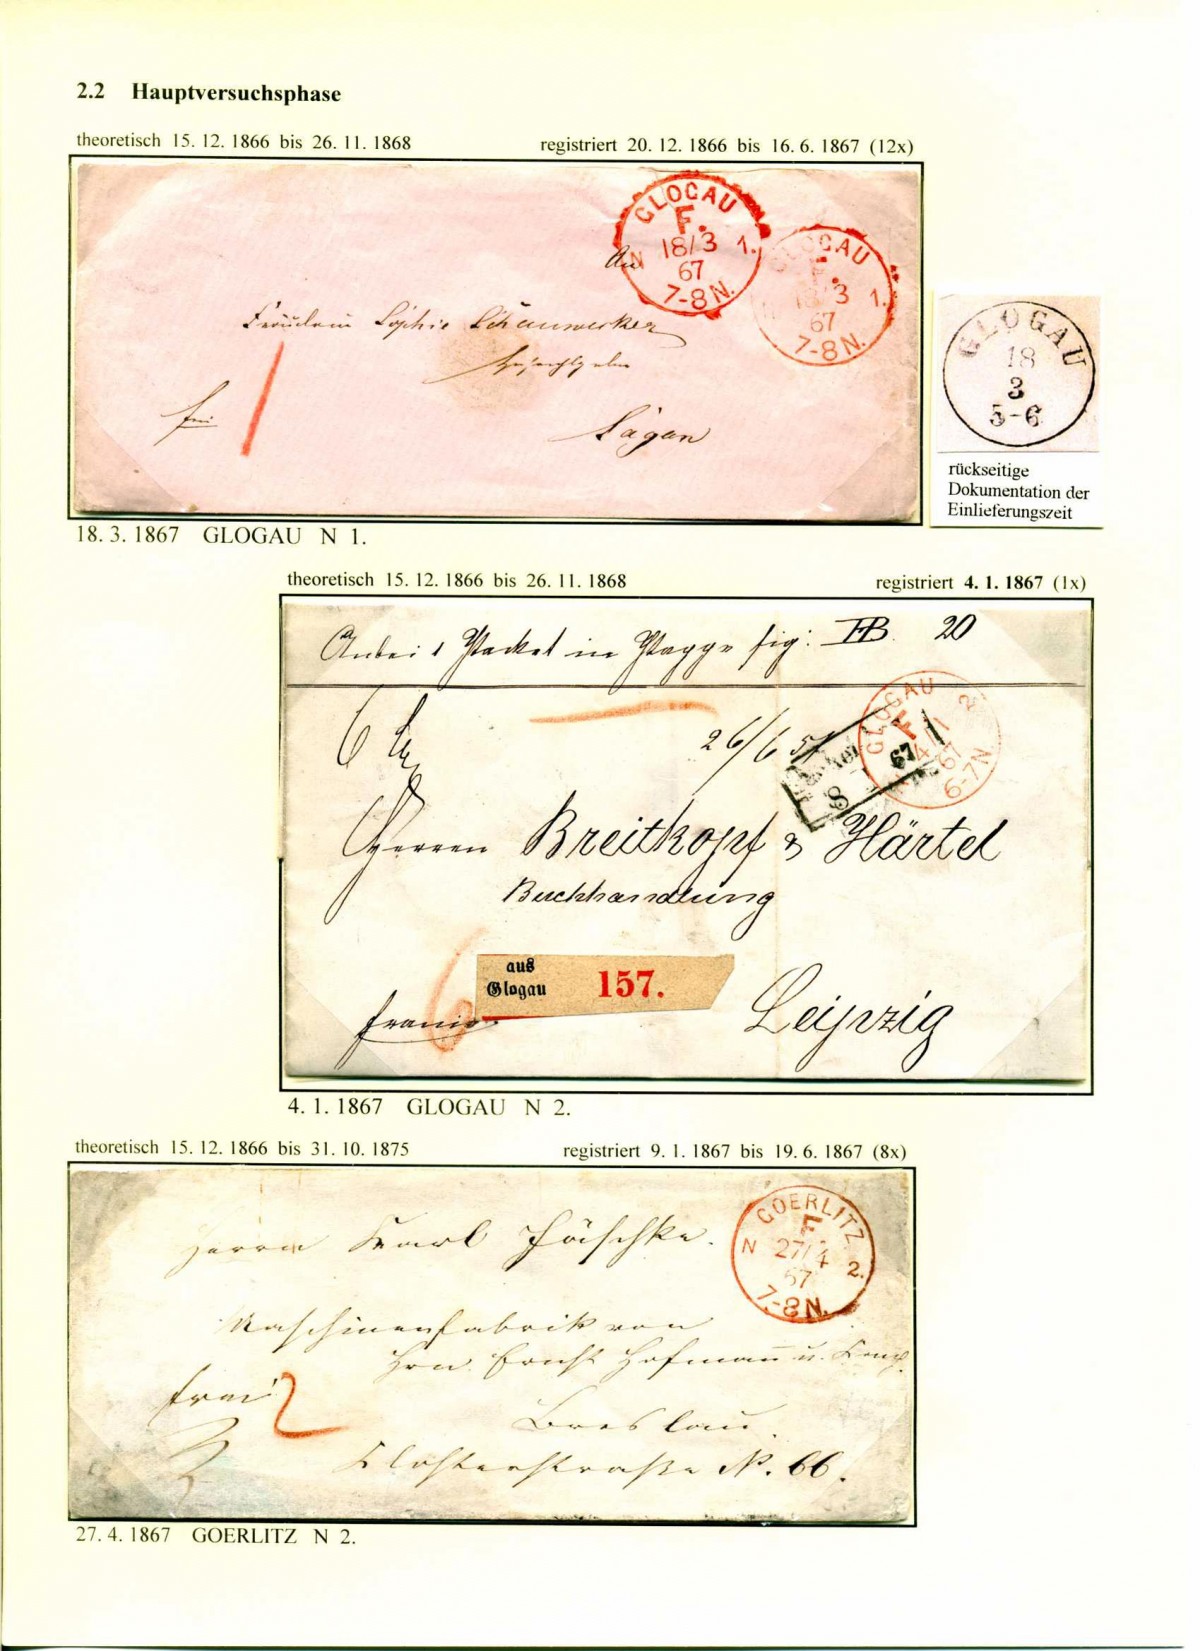 2.2 Hauptversuchsphase
theoretisch 15. 12. 1866 bis 26. 11. 1868
registriert 20. 12. 1866 bis 16. 6. 1867 (12x)
GLOGAU
F.
N 18/3 1.
67
7-8 N.
GLOGAU
F.
18/3 1.
67
7-8 N.
An
Fräulein Sophie Schauwecker
frei
Sagan
GLOGAU
18
3
5-6
rückseitige
Dokumentation der
Einlieferungszeit
18. 3. 1867 GLOGAU N 1.
theoretisch 15. 12. 1866 bis 26. 11. 1868
registriert 4. 1. 1867 (1x)
Anbei 1 Packet in Pappe sig: HB 20
26/6 51
GLOGAU 2.
F.
4/1
67
6-7 N
67
Herren Breitkopf & Härtel
Buchhandlung
aus
Glogau
157.
6
franco
Leipzig
4. 1. 1867 GLOGAU N 2.
theoretisch 15. 12. 1866 bis 31. 10. 1875
registriert 9. 1. 1867 bis 19. 6. 1867 (8x)
GOERLITZ
F.
N 27/4 2.
67
7-8 N.
Herrn Karl Jäschke.
Maschinenfabrik von
Hrn. Ernst Hofmann u. Comp.
frei 2
Breslau.
Klosterstraße N. 66.
27. 4. 1867 GOERLITZ N 2.